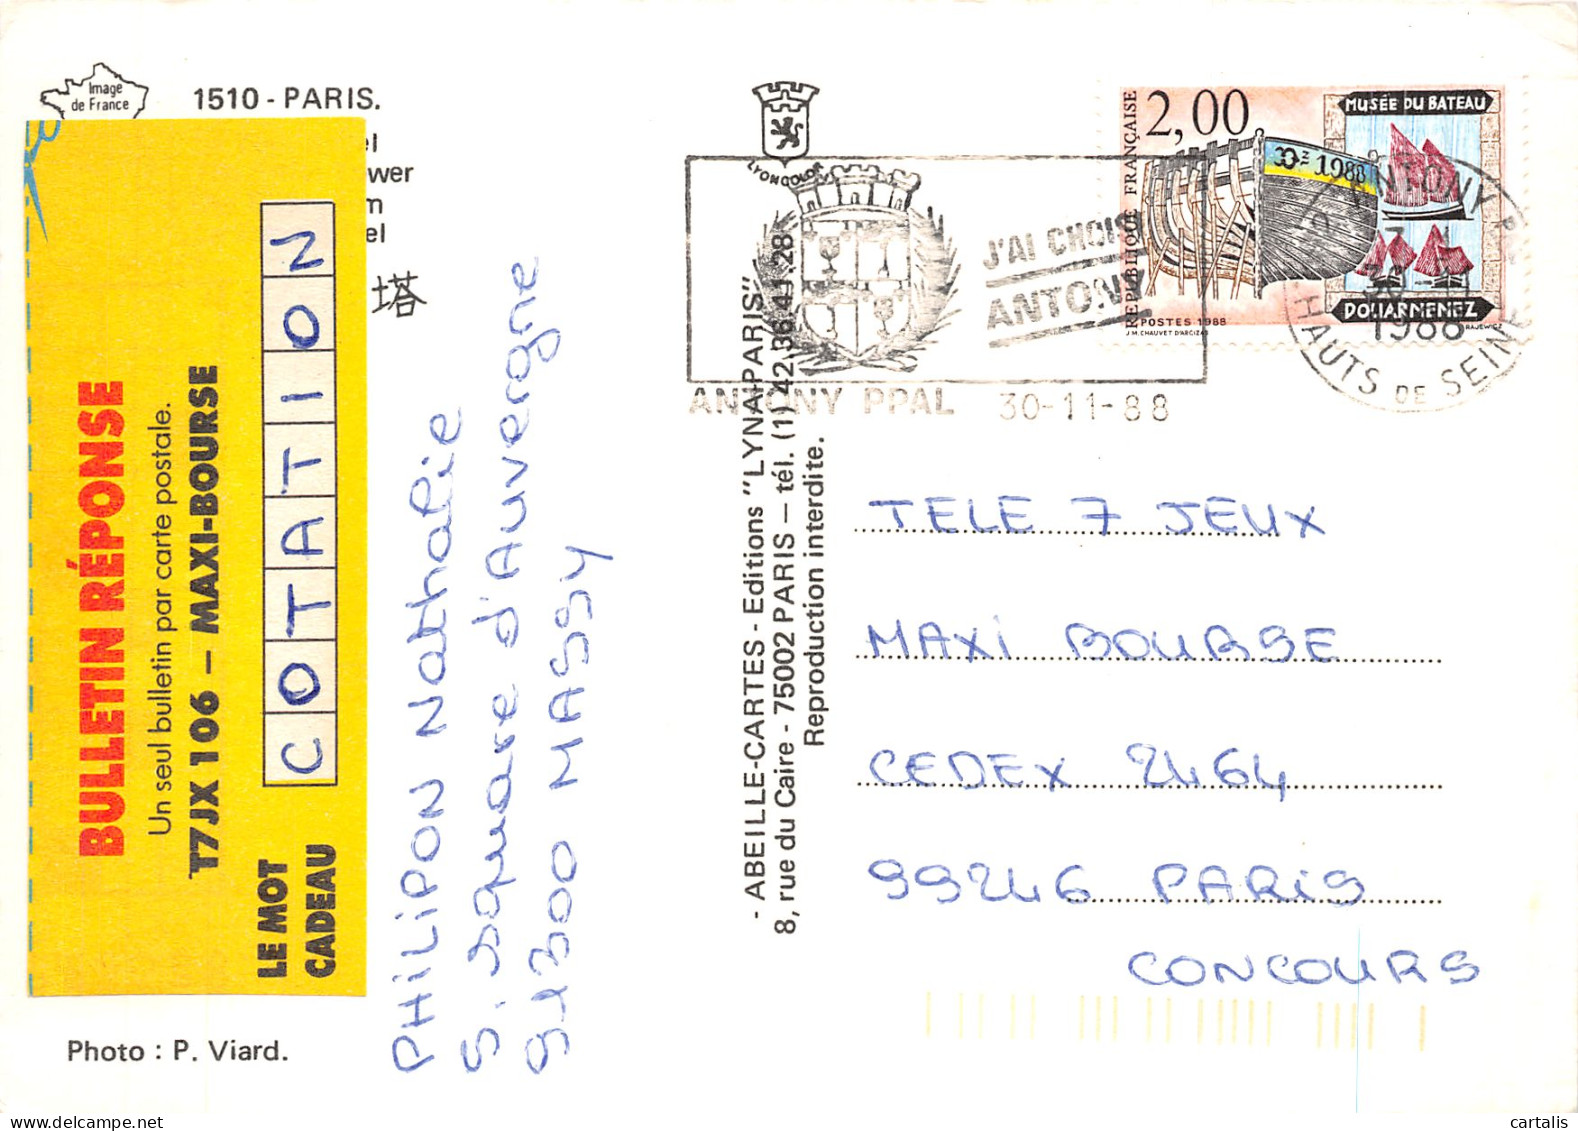 Image
de France
1510 - PARIS.
el
wer
m
el
塔
BULLETIN RÉPONSE
Un seul bulletin par carte postale.
T7JX 106 – MAXI-BOURSE
LE MOT
CADEAU
COTATION
Photo : P. Viard.
PHILIPON Nathalie
5. square d'Auvergne
91300 MASSY
LYONCOLOR
- ABEILLE-CARTES - Editions "LYNA-PARIS"
8, rue du Caire - 75002 PARIS — tél. (1) 42.36.41.28
Reproduction interdite.
J'AI CHOISI
ANTONY
ANTONY PPAL 30-11-88
RÉPUBLIQUE FRANÇAISE
2,00
Dz 1988
MUSÉE DU BATEAU
DOUARNENEZ
POSTES 1988
J.M. CHAUVET D'ARCIZAS
RAJEWICZ
ANTONY
1988
HAUTS DE SEINE
TELE 7 JEUX
MAXI BOURSE
CEDEX 2464
99246 PARIS
CONCOURS
cartalis